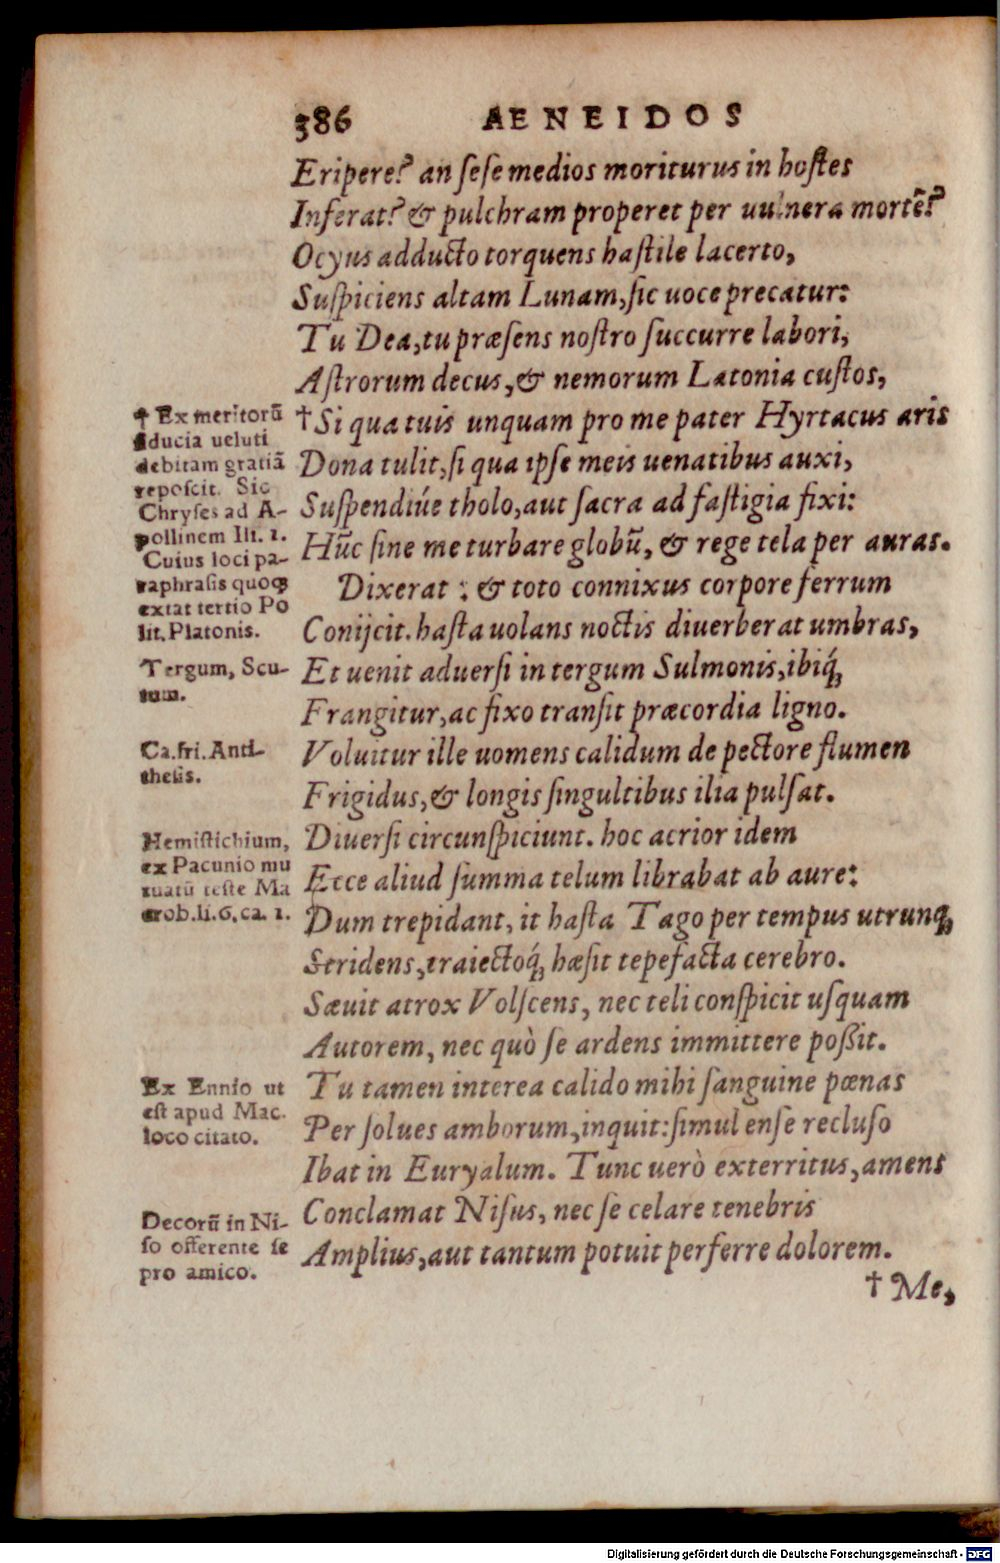 386 AENEIDOS
Eripere? an ſeſe medios moriturus in hoſtes
Inferat? & pulchram properet per uulnera mortẽ?
Ocyus adducto torquens haſtile lacerto,
Suſpiciens altam Lunam, ſic uoce precatur:
Tu Dea, tu præſens noſtro ſuccurre labori,
Aſtrorum decus, & nemorum Latonia cuſtos,
† Si qua tuis unquam pro me pater Hyrtacus aris
Dona tulit, ſi qua ipſe meis uenatibus auxi,
Suſpendiúe tholo, aut ſacra ad faſtigia fixi:
Hũc ſine me turbare globũ, & rege tela per auras.
Dixerat: & toto connixus corpore ferrum
Conijcit. haſta uolans noctis diuerberat umbras,
Et uenit aduerſi in tergum Sulmonis, ibiq́;
Frangitur, ac fixo tranſit præcordia ligno.
Voluitur ille uomens calidum de pectore flumen
Frigidus, & longis ſingultibus ilia pulſat.
Diuerſi circunſpiciunt. hoc acrior idem
Ecce aliud ſumma telum librabat ab aure:
Dum trepidant, it haſta Tago per tempus utrunq;
Stridens, traiectoq́; hæſit tepefacta cerebro.
Sæuit atrox Volſcens, nec teli conſpicit uſquam
Autorem, nec quò ſe ardens immittere poßit.
Tu tamen interea calido mihi ſanguine pœnas
Per ſolues amborum, inquit: ſimul enſe recluſo
Ibat in Euryalum. Tunc uerò exterritus, amens
Conclamat Niſus, nec ſe celare tenebris
Amplius, aut tantum potuit perferre dolorem.
† Me,
† Ex meritorũ
fiducia ueluti
debitam gratiã
repoſcit. Sic
Chryſes ad A-
pollinem Ili. 1.
Cuius loci pa-
raphraſis quoq;
extat tertio Po
lit. Platonis.
Tergum, Scu-
tum.
Ca. fri. Anti-
theſis.
Hemiſtichium,
ex Pacunio mu
tuatũ teſte Ma
crob. li. 6. ca. 1.
Ex Ennio ut
eſt apud Mac.
loco citato.
Decorũ in Ni-
ſo offerente ſe
pro amico.
Digitalisierung gefördert durch die Deutsche Forschungsgemeinschaft - DFG